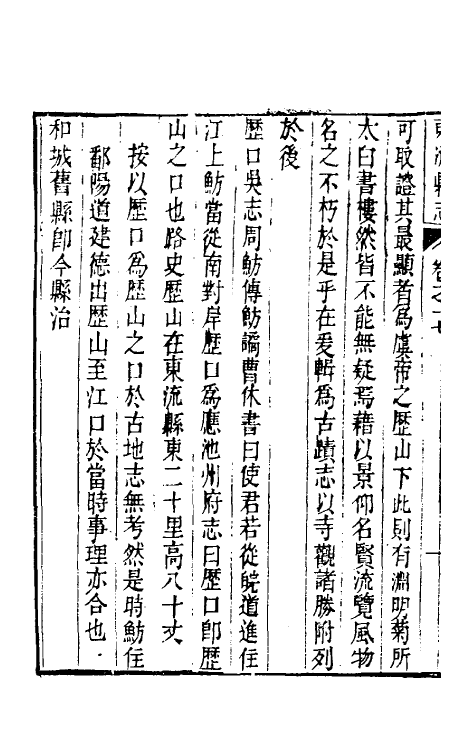 東流縣志 卷之十
可取證其最顯者為虞帝之歷山下此則有淵明菊所
太白書樓然皆不能無疑焉藉以景仰名賢流覽風物
名之不朽於是乎在爰輯為古蹟志以寺觀諸勝附列
於後
歷口吳志周魴傳魴譎曹休書曰使君若從皖道進住
江上魴當從南對岸歷口為應池州府志曰歷口卽歷
山之口也路史歷山在東流縣東二十里高八十丈
按以歷口為歷山之口於古地志無考然是時魴住
鄱陽道建德出歷山至江口於當時事理亦合也
和城舊縣卽今縣治